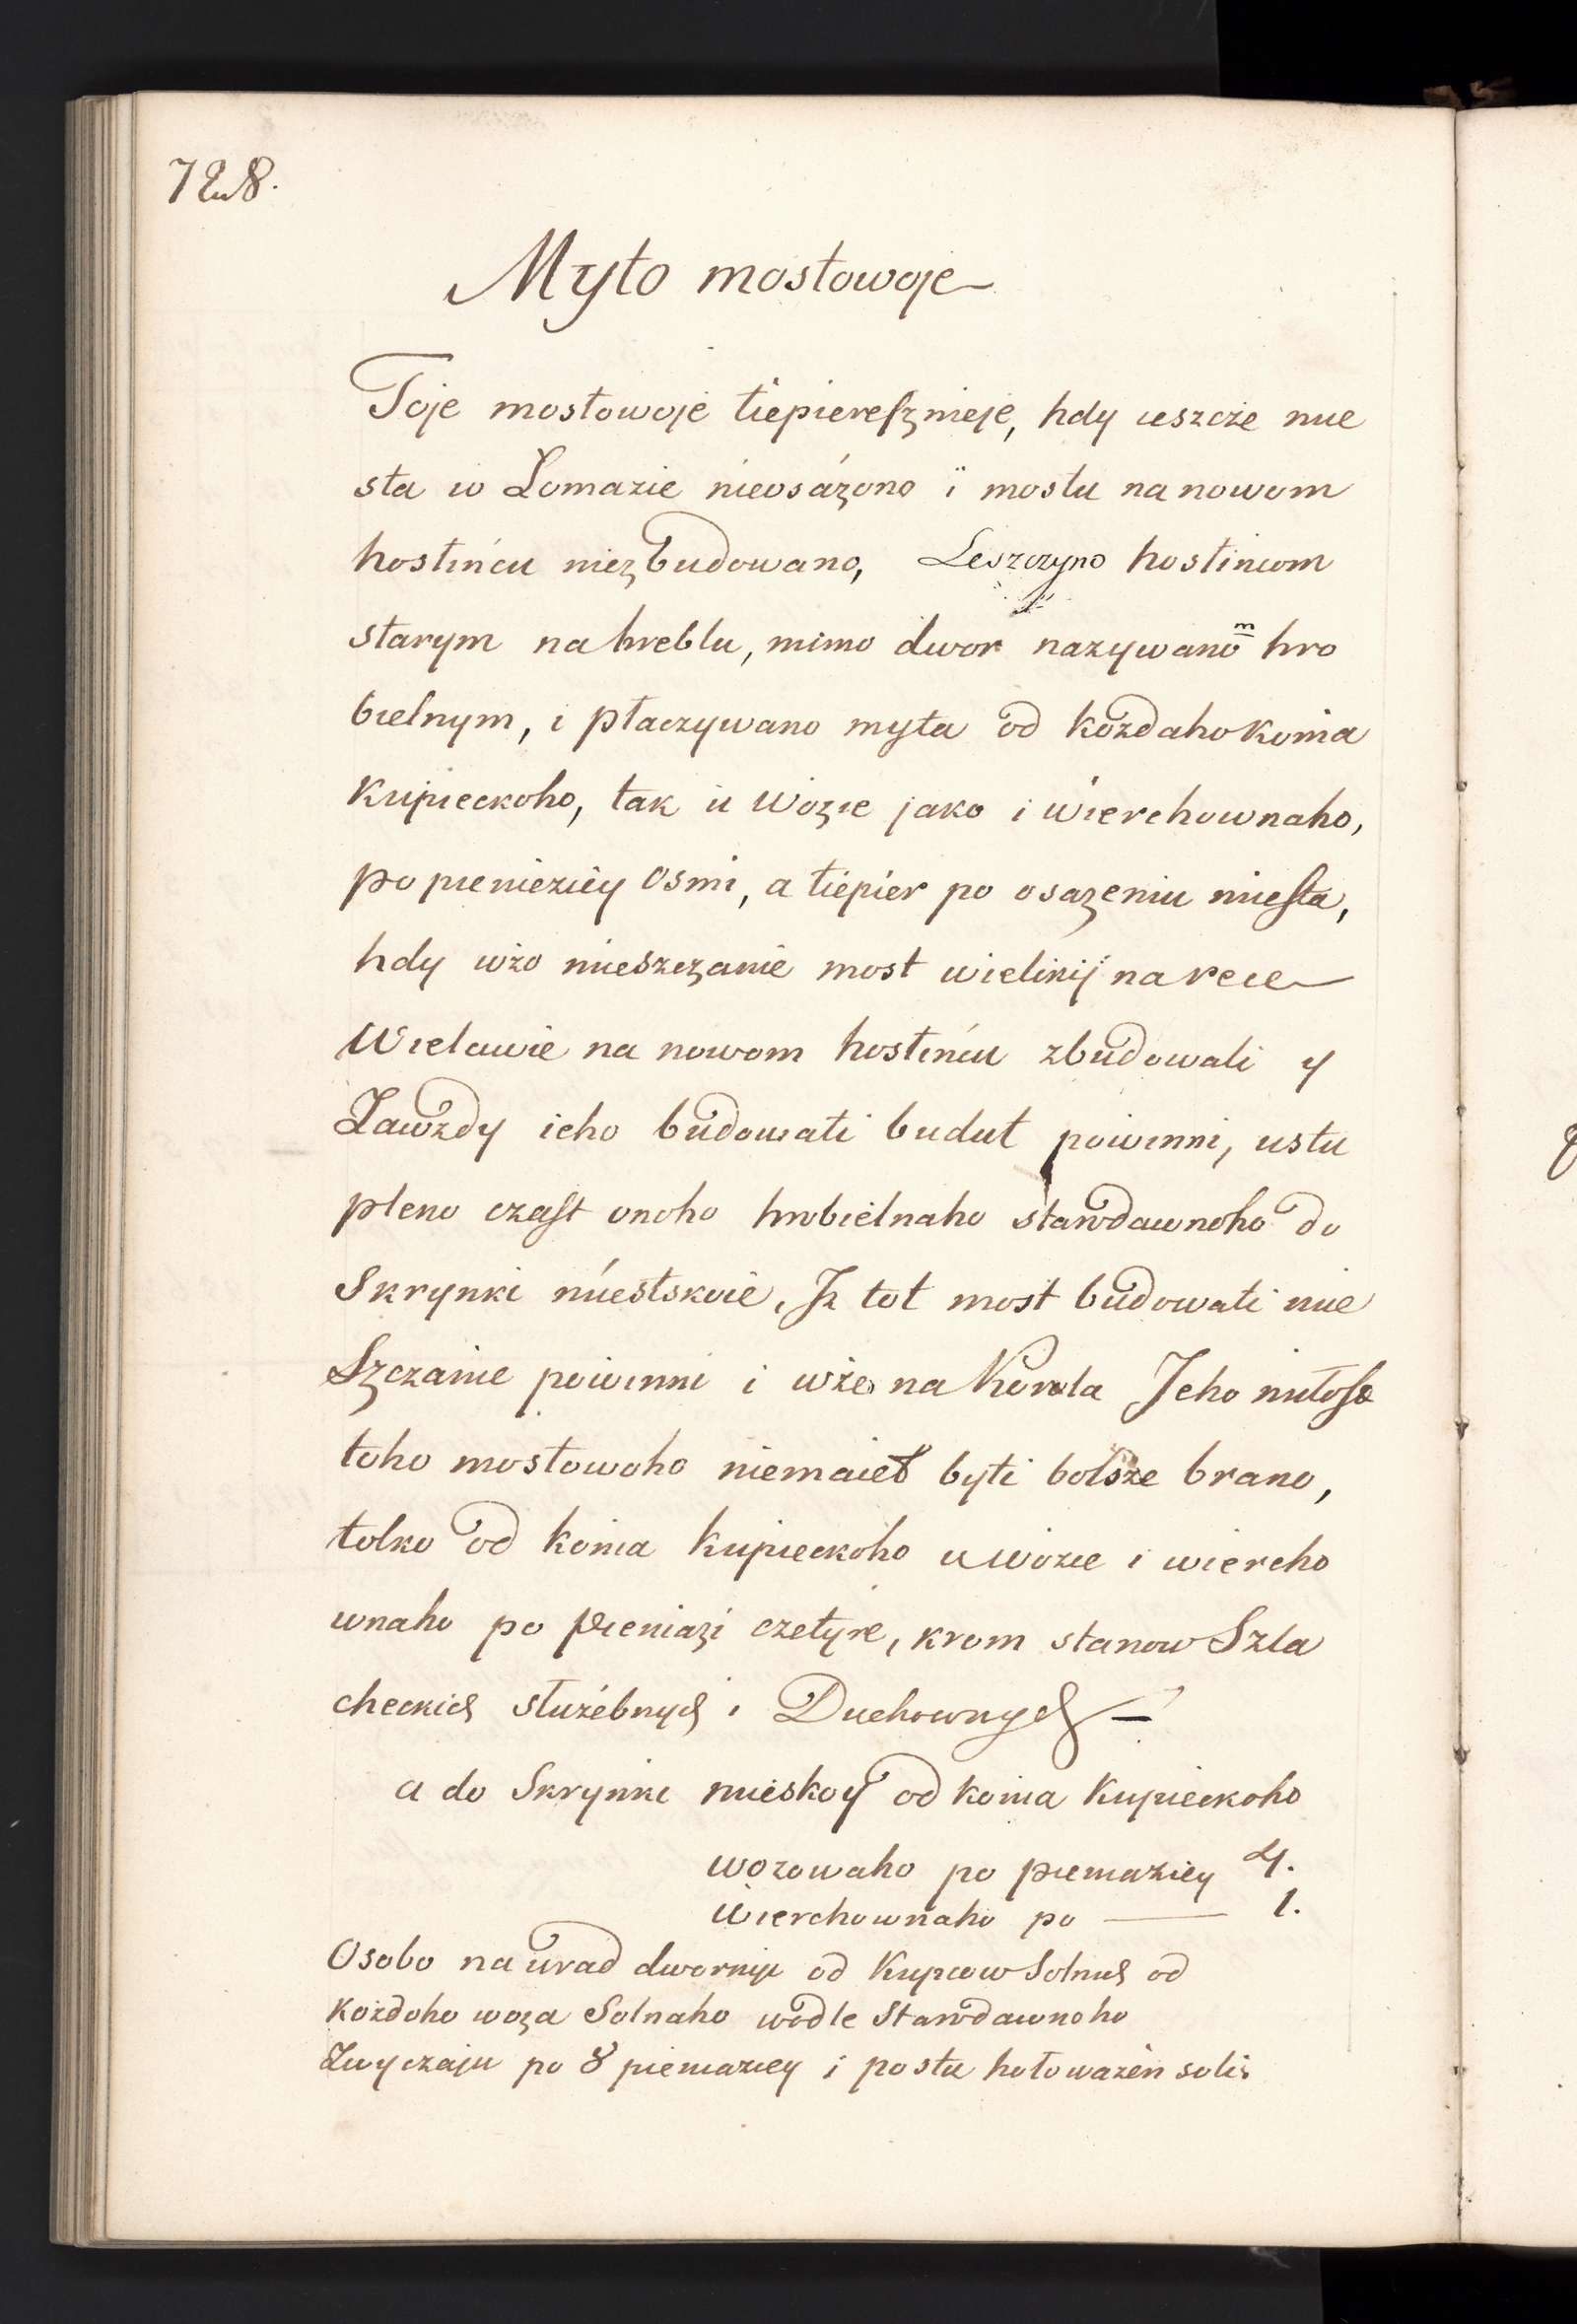 728.
Myto mostowoje
Toje mostowoje tiepieresznieje, hdy ieszcże mie
sta w Lomazie nieosázono i mostu na nowom
hostińcu niezbudowano, Leszczyno hostincom
starym na hreblu, mimo dwor nazywanom hro
bielnym, i płaczywano myta od kożdaho konia
Kupieckoho, tak u wozie jako i wierchownaho,
po pienieziey osmi, a tiepier po osazeniu miesta,
hdy wżo mieszczanie most wielikij na rece
Wielawie na nowom hostińcu zbudowali y
Zawżdy ieho budowati budut powinni, ustu
pleno czast onoho hrobielnaho starodawnoho do
Skrynki miestskoie, Iż tot most budowati mie
Szczanie powinni i wże na Korola Jeho miłosc
toho mostowoho niemaiet byti bolsze brano,
tolko od konia kupieckoho u wozie i wiercho
wnaho po pieniazi czetyre, krom stanow Szla
checkich służebnych i Duchownych
a do Skrynki mieskoy od konia Kupieckoho
wozowaho po pieniaziey 4.
wierchownaho po — 1.
Osobo na urad dwornyi od Kupcow Solnych od
Kożdoho woza Solnaho wodle Starodawnoho
Zwyczaju po 8 pieniaziey i po stu hołoważen soli.